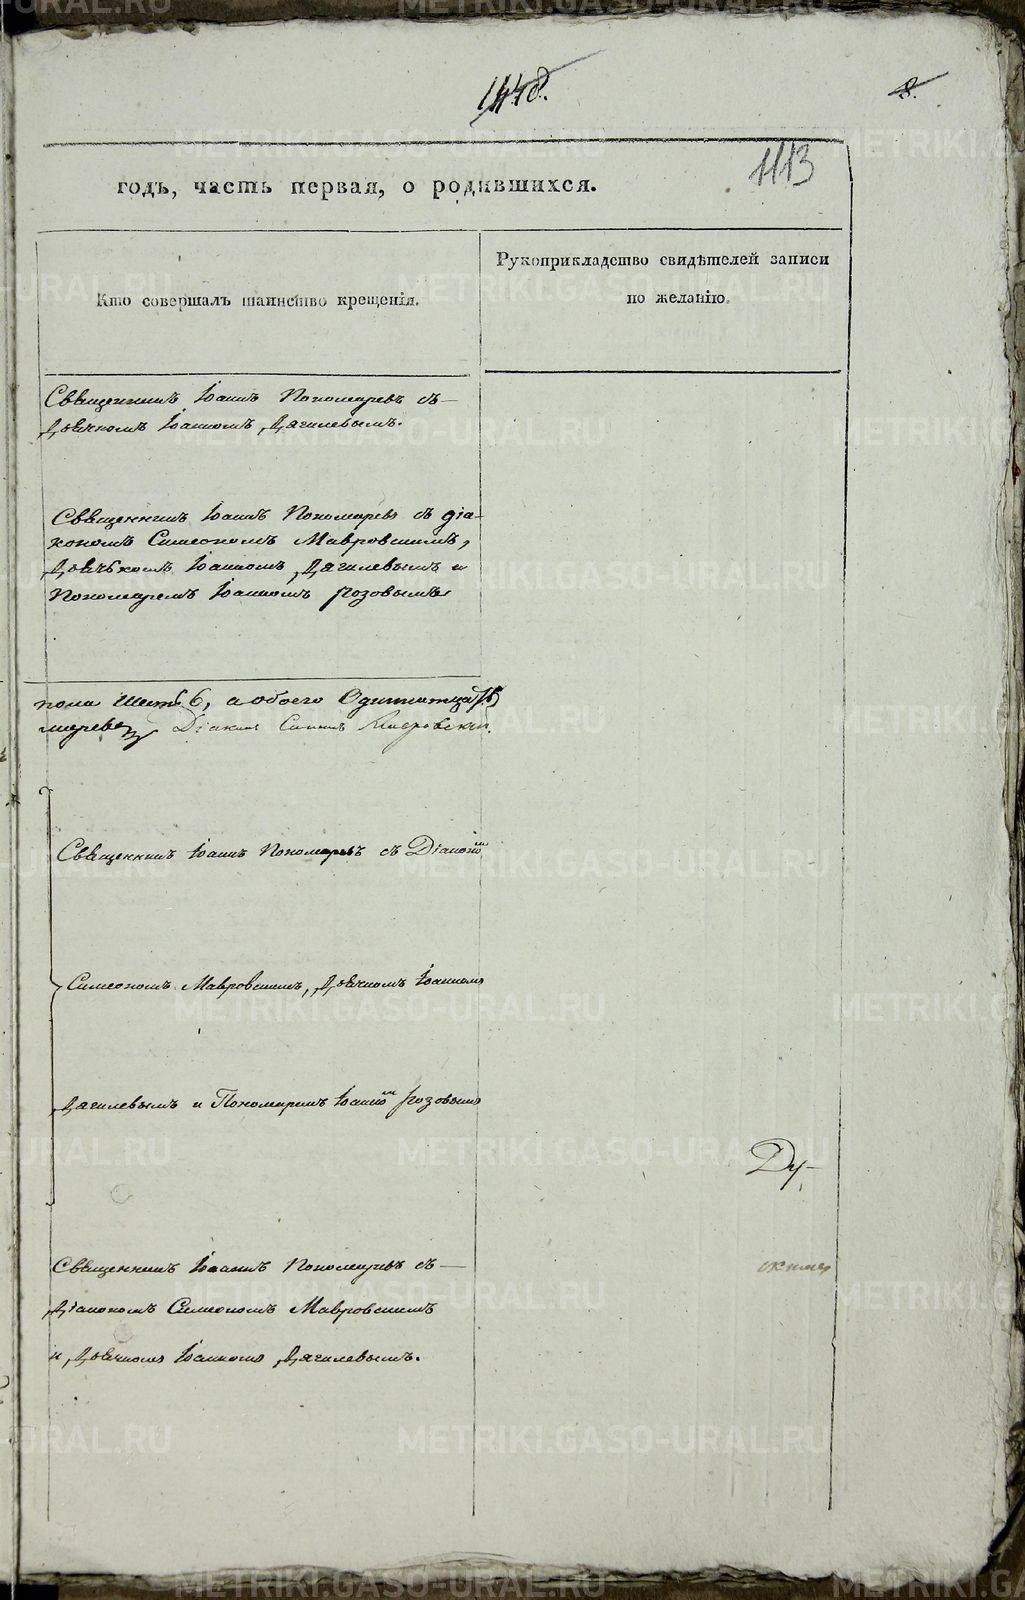 1148.
8.
1113
годъ, часть первая, о родившихся.
Кто совершалъ таинство крещенія.
Рукоприкладство свидѣтелей записи
по желанію.
Священникъ Іоаннъ Пономаревъ съ
Дьячкомъ Іоанномъ Дягилевымъ.
Священникъ Іоаннъ Пономаревъ съ діа-
кономъ Симеономъ Мавровскимъ,
Дьячькомъ Іоанномъ Дягилевымъ и
Пономаремъ Іоанномъ Розовымъ
пола Шесть 6, а обоего Одиннатцать
маревъ Діаконъ Симеонъ Мавровскій.
Священникъ Іоаннъ Пономаревъ съ Діакономъ
Симеономъ Мавровскимъ, Дьячкомъ Іоанномъ
Дягилевымъ и Пономаремъ Іоанномъ Розовымъ
Ду-
Священникъ Іоаннъ Пономаревъ съ
Діакономъ Симеономъ Мавровскимъ
и Дьячкомъ Іоанномъ Дягилевымъ.
METRIKI.GASO-URAL.RU